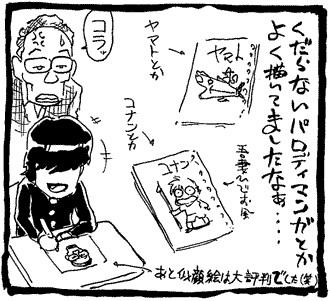 くだらないパロディマンガとか
よく描いてましたなぁ・・・
ヤマトとか
ヤマト
コラッ
コナンとか
コナン
吾妻ひでお風
あと似顔絵は大評判でした(笑)